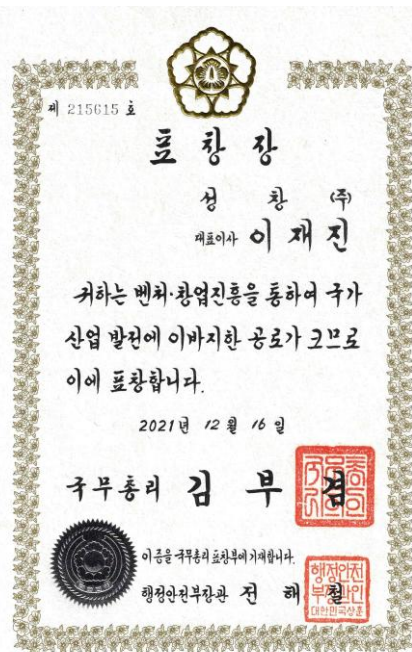 제 215615 호
표창장
성창 (주)
대표이사 이재진
귀하는 벤처·창업진흥을 통하여 국가
산업 발전에 이바지한 공로가 크므로
이에 표창합니다.
2021년 12월 16일
국무총리 김부겸
이 증을 국무총리 표창부에 기재합니다.
행정안전부장관 전해철
행정안전
부장관인
대한민국상훈